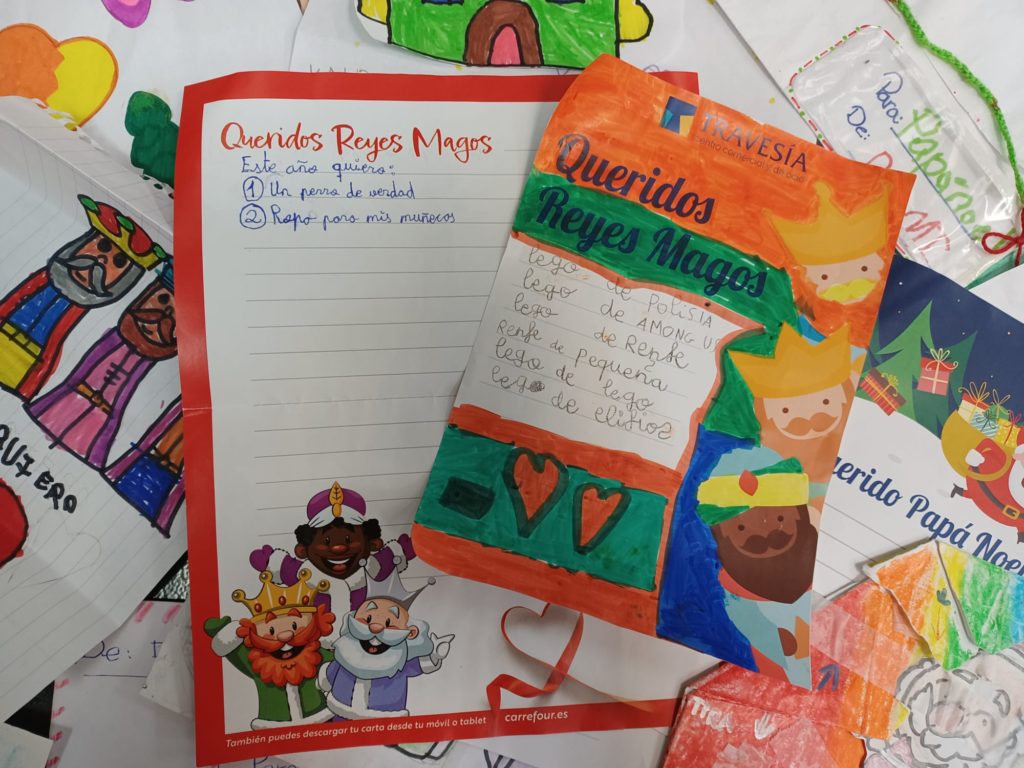 Queridos Reyes Magos
Este año quiero:
① Un perro de verdad
② Ropa para mis muñecos
También puedes descargar tu carta desde tu móvil o tablet
carrefour.es
TRAVESÍA
centro comercial y de ocio
Queridos
Reyes Magos
lego de POLISIA
lego de AMONG US
lego de RENFE
RENFE de PEQUEÑA
lego de lego
lego de elifios
Para: Papá Noel
De:
Querido Papá Noel
QUIERO
De:
Para
TIRA